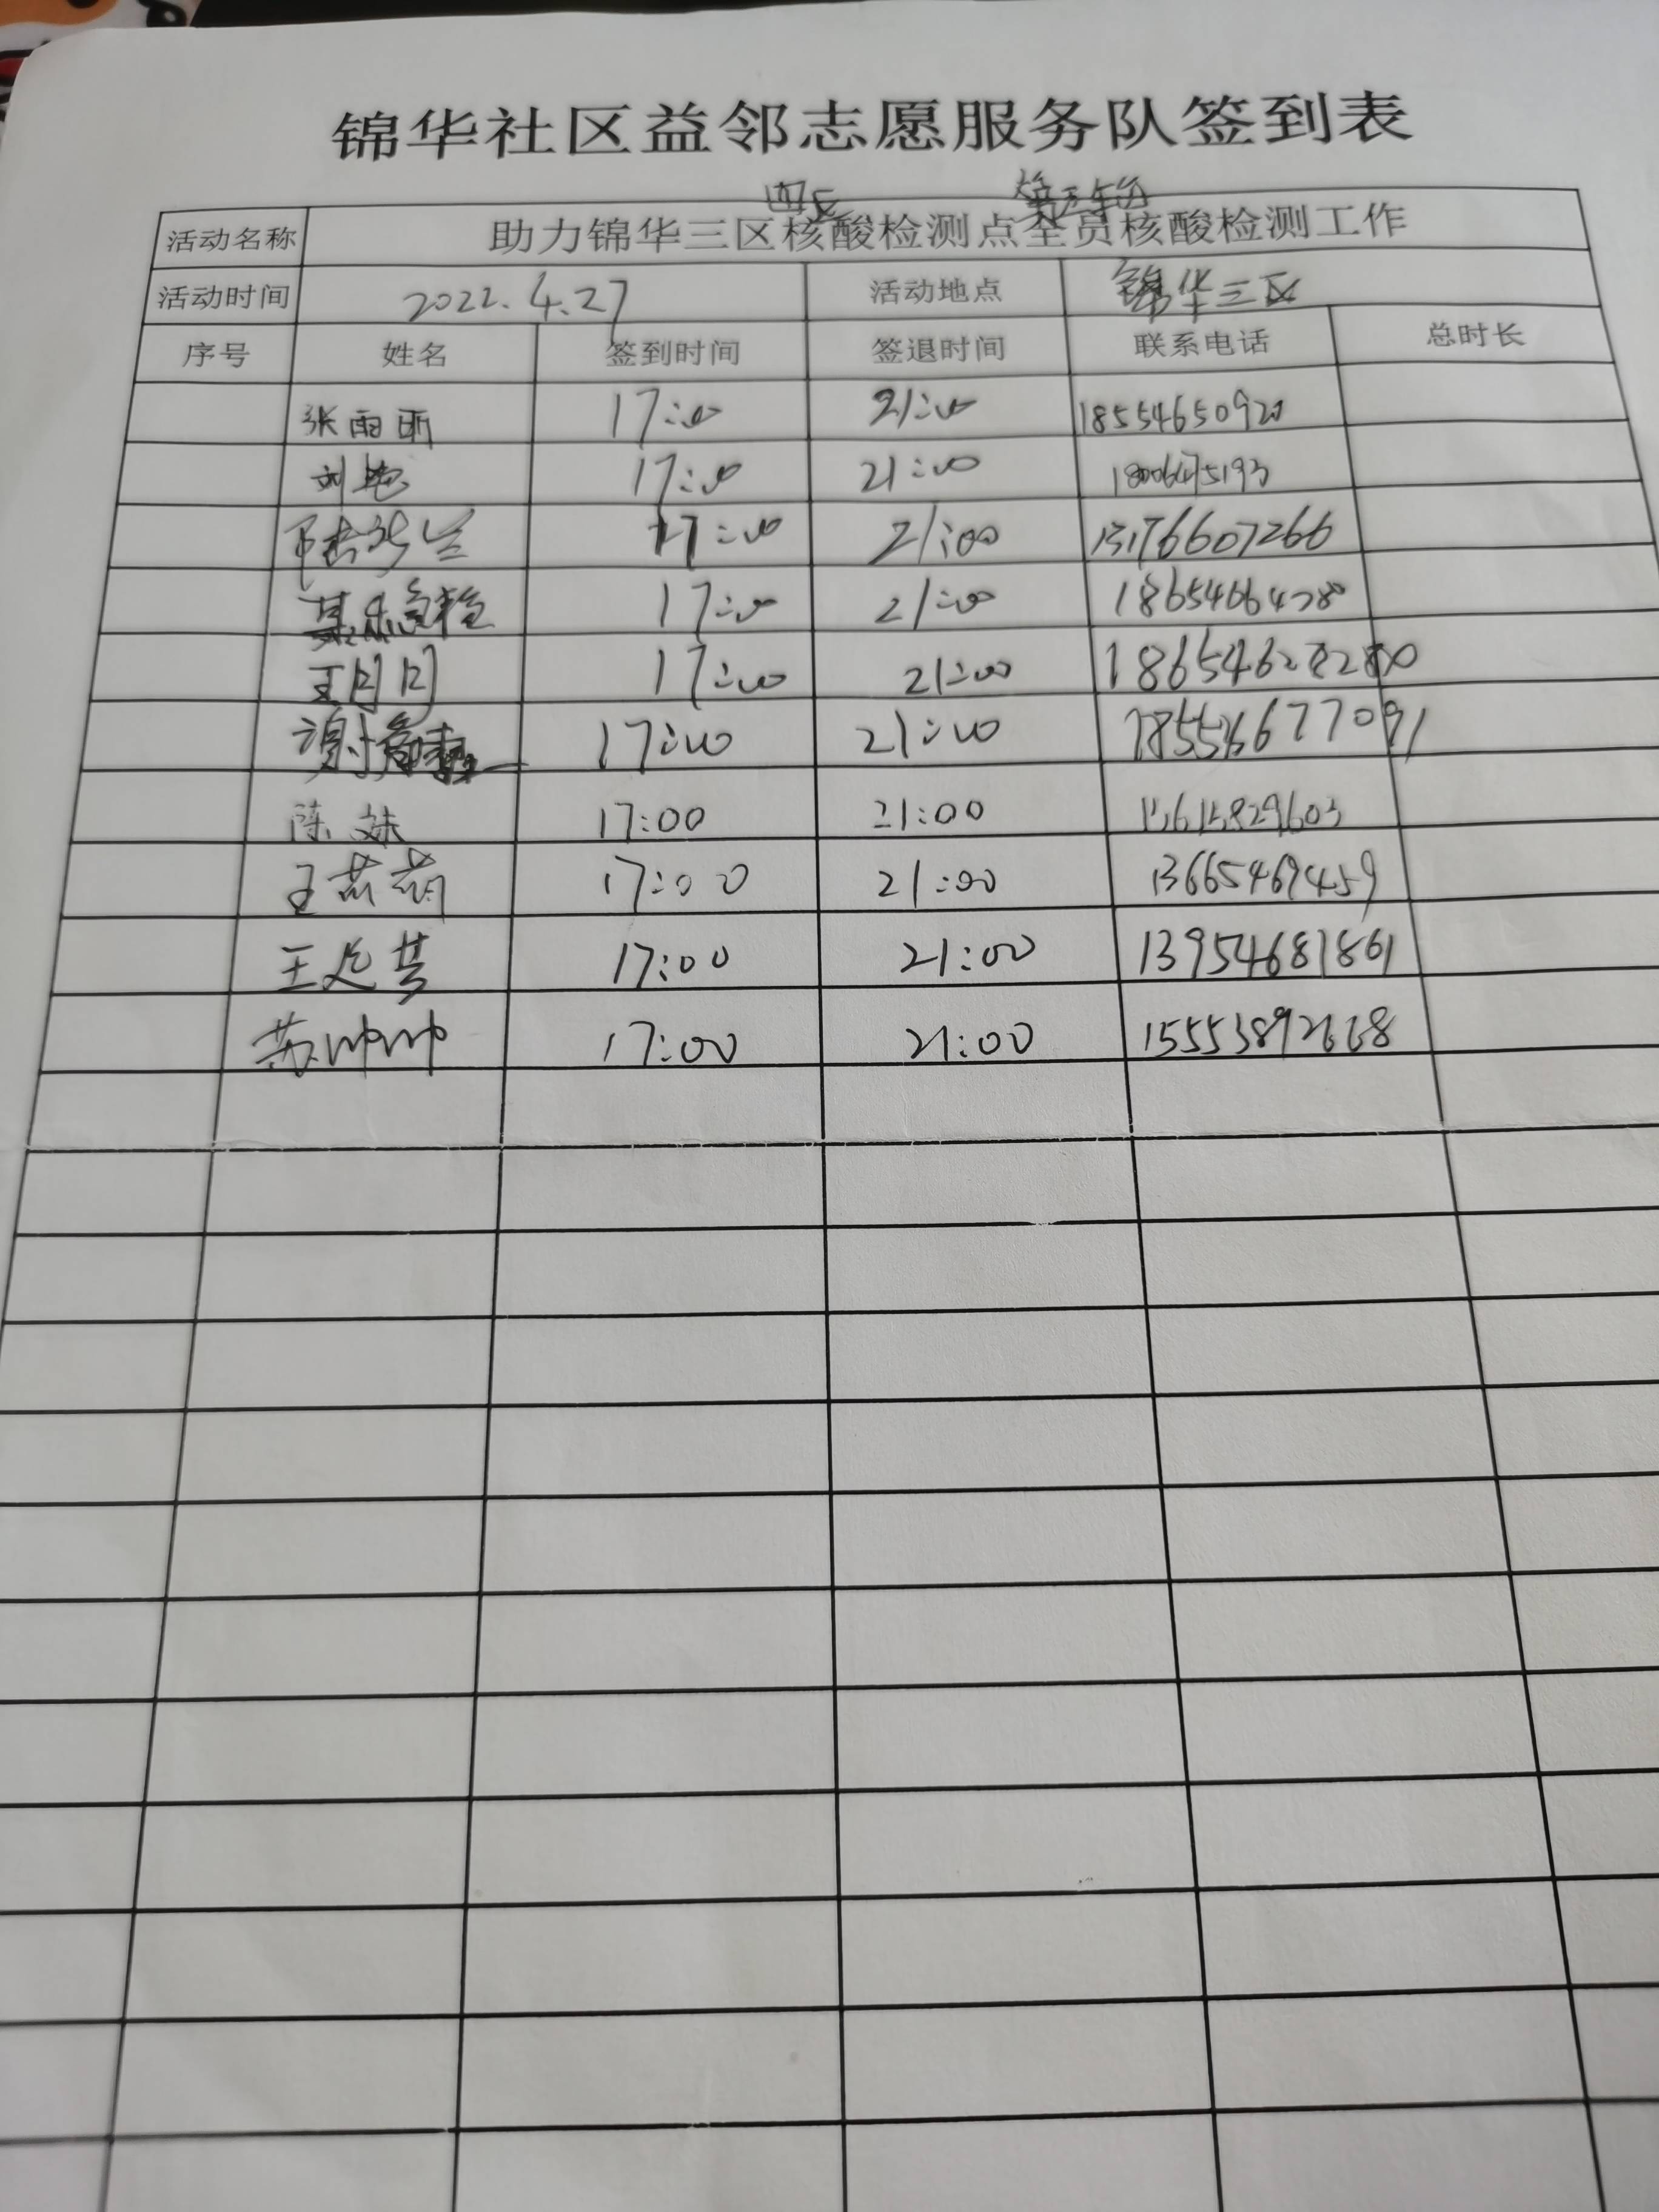 锦华社区益邻志愿服务队签到表
四区
活动名称 助力锦华三区核酸检测点全员核酸检测工作
活动时间 2022.4.27 活动地点 锦华三区
序号 姓名 签到时间 签退时间 联系电话 总时长
张雨 17:00 21:00 18554650920
刘艳 17:00 21:00
17:00 21:00 13176607266
17:00 21:00
王月月 17:00 21:00
谢 17:00 21:00
陈 17:00 21:00 13615829603
王燕燕 17:00 21:00 13665469459
王 17:00 21:00 13954681861
苏帅帅 17:00 21:00 15553892668